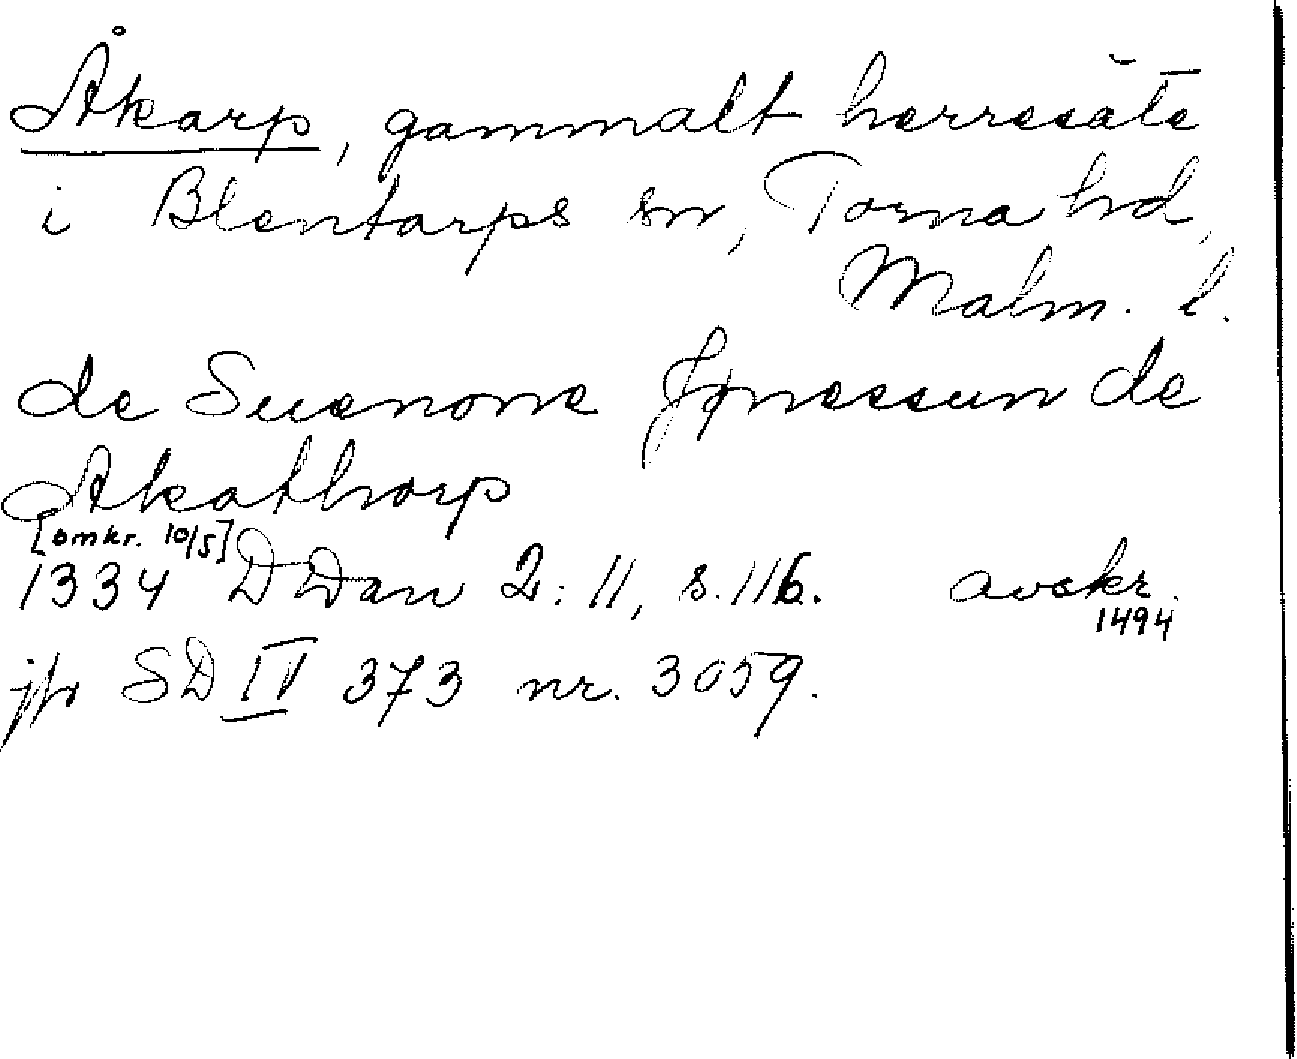 Åkarp, gammalt herresäte
i Blentarps sn, Torna hd,
Malm. l.
de Suenone Jønessun de
Akathorp
[omkr. 10/5]
1334 DDan 2: 11, s. 116. avskr.
1494
jfr SD IV 373 nr. 3059.